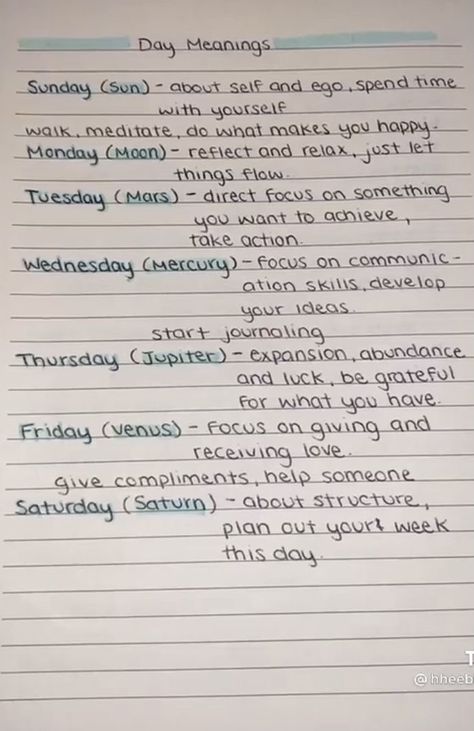 Day Meanings
Sunday (Sun) - about self and ego, spend time
with yourself
walk, meditate, do what makes you happy.
Monday (Moon) - reflect and relax, just let
things flow.
Tuesday (Mars) - direct focus on something
you want to achieve,
take action.
Wednesday (Mercury) - focus on communic-
ation skills, develop
your ideas.
start journaling
Thursday (Jupiter) - expansion, abundance
and luck, be grateful
for what you have.
Friday (Venus) - focus on giving and
receiving love.
give compliments, help someone
Saturday (Saturn) - about structure,
plan out your week
this day.
@hheeb